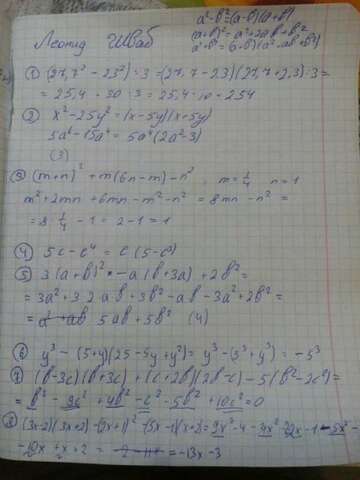 a²-b²=(a-b)(a+b)
(a+b)²=a²+2ab+b²
Леонид Шваб
a³+b³=(a+b)(a²-ab+b²)
① (27,7² - 2,3²) : 3 = (27,7 - 2,3)(27,7+2,3) : 3 =
= 25,4 · 30 : 3 = 25,4 · 10 = 254
② x² - 25y² = (x-5y)(x+5y)
- 15a⁴ = 5a⁴(2a²-3)
(3)
③ (m+n)² + m(6n-m) - n² m=1/4 n=1
m² + 2mn + 6mn - m² - n² = 8mn - n² =
= 8 · 1/4 - 1 = 2-1 = 1
④ 5c - c⁴ = c(5-c³)
⑤ 3(a+b)² - a(b+3a) + 2b² =
= 3a² + 3·2ab + 3b² - ab - 3a² + 2b² =
= 5ab + 5b² (4)
⑥ y³ - (5+y)(25-5y+y²) = y³ - (5³+y³) = -5³
⑦ (b-3c)(b+3c) + (c+2b)(2b-c) - 5(b²-2c²) =
= b² - 9c² + 4b² - c² - 5b² + 10c² = 0
⑧ (3x-2)(3x+2) - (2x+1)² - (5x-1)(x+2) = 9x² - 4 - 4x² - 4x - 1 - 5x² -
- 10x + x + 2 = = -13x - 3